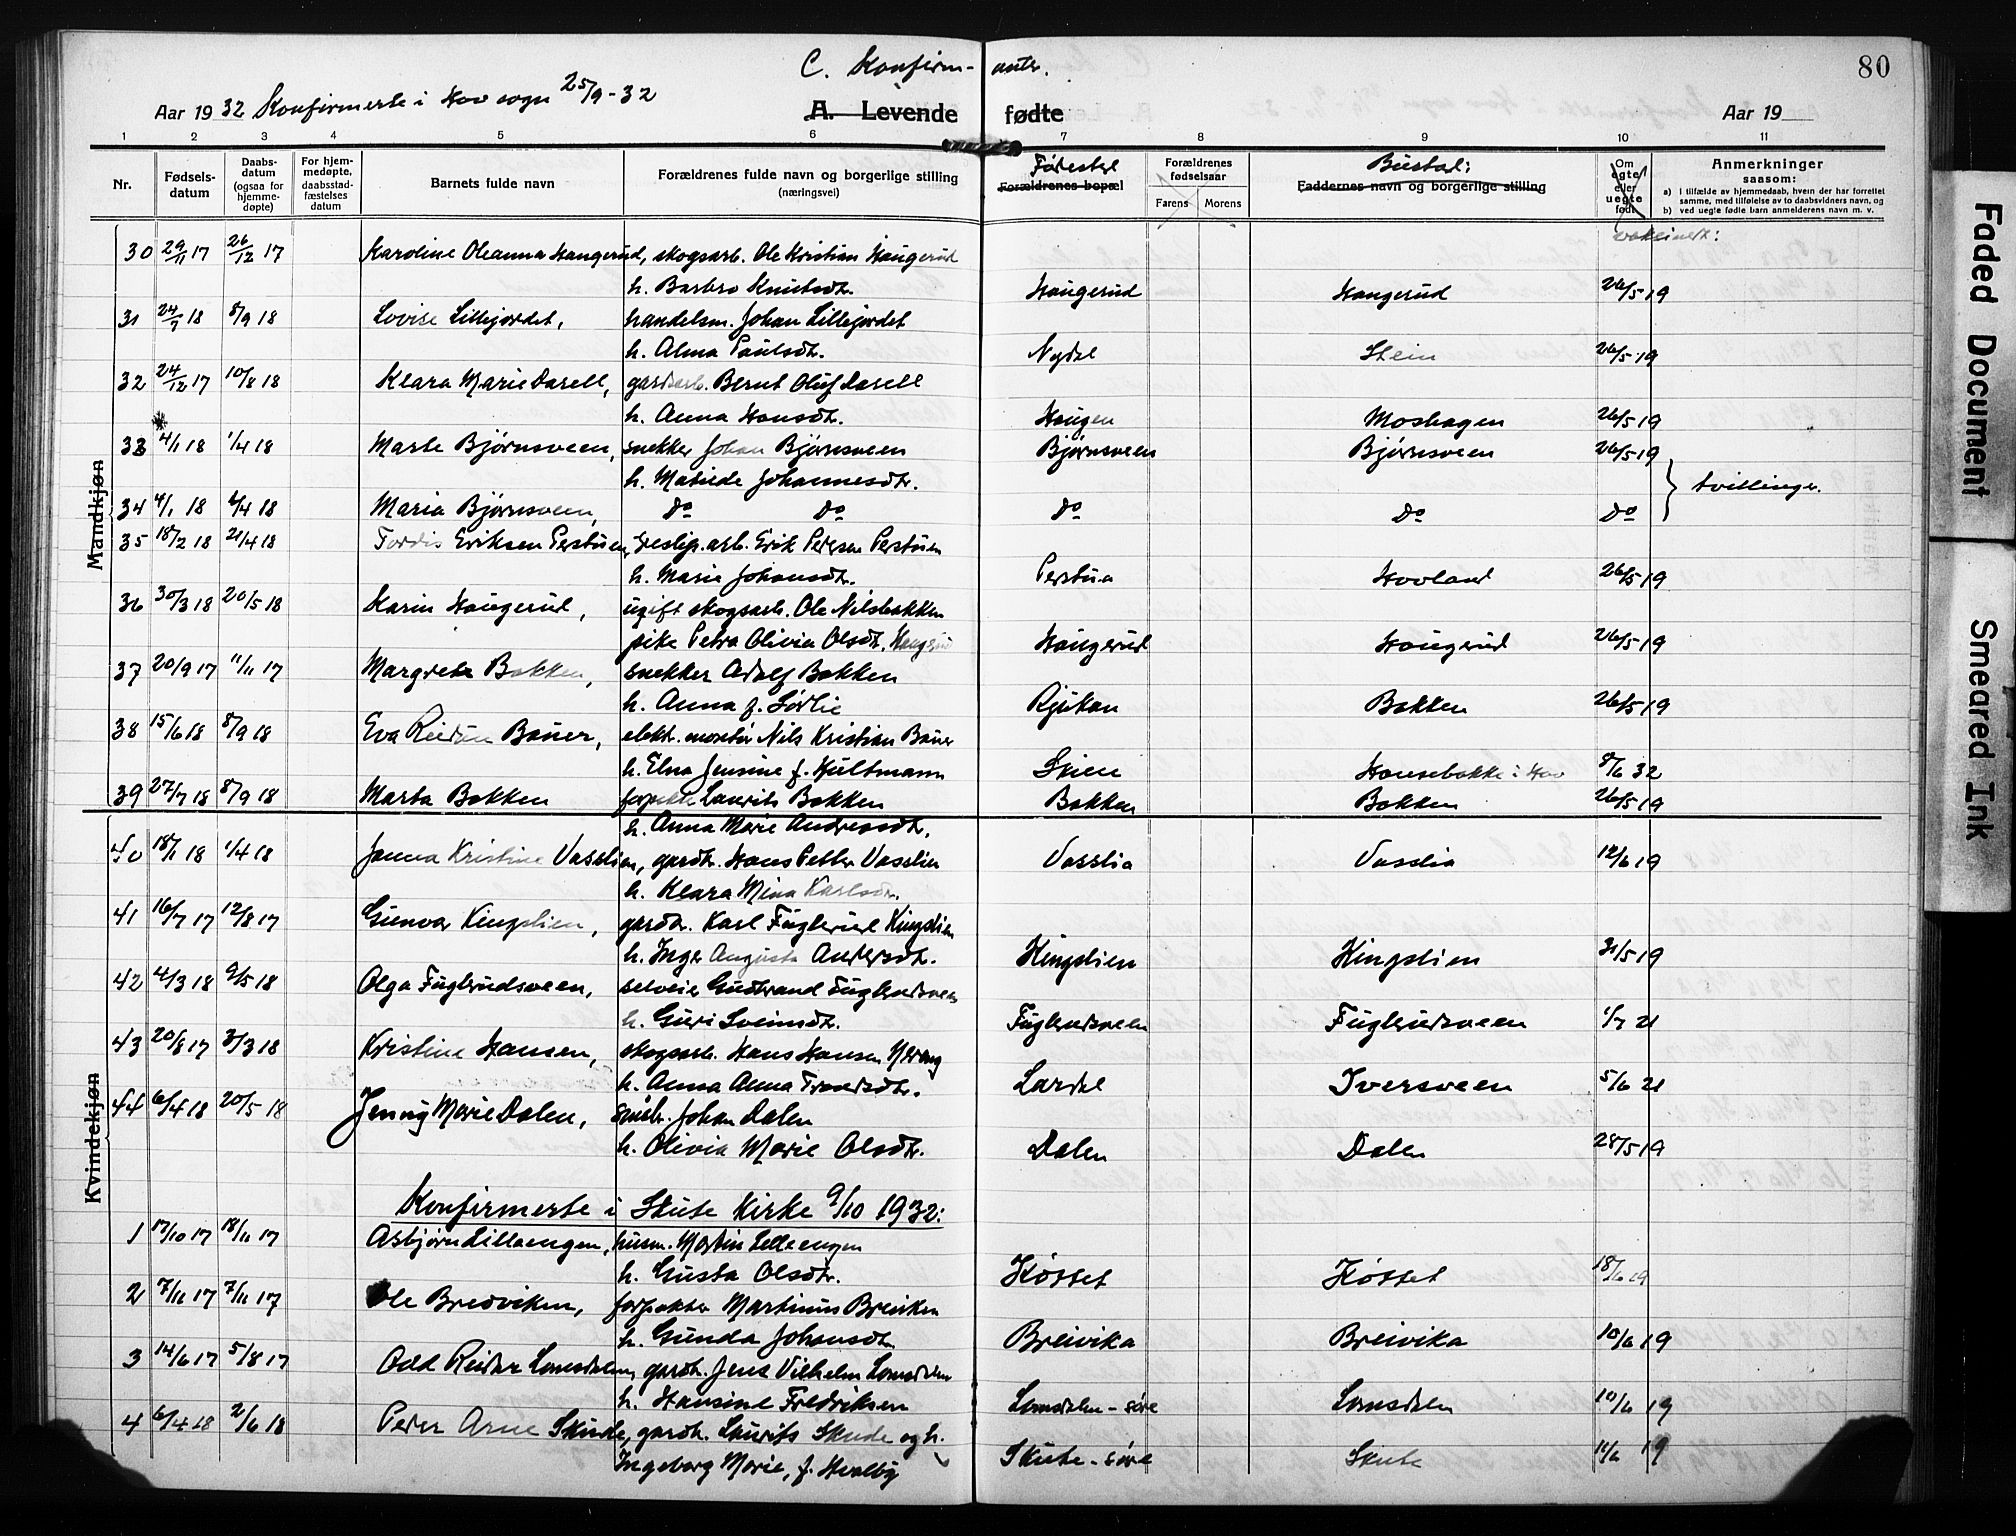 C. Konfirm- anter.
80
Aar 1932 Konfirmerte i Hov sogn 25/9-32
A. Levende fødte
Aar 19
1 2 3 4 5 6 7 8 9 10 11
Nr. Fødsels-datum Daabs-datum (ogsaa for hjemme-døpte) For hjem-medøpte, daabsstad-fæstelses datum Barnets fulde navn Forældrenes fulde navn og borgerlige stilling (næringsvei) Fødested Forældrenes bopæl Forældrenes fødselsaar Farens Morens Bustad: Faddernes navn og borgerlige stilling Om egte eller uegte født Anmerkninger saasom: a) I tilfælde av hjemmedaab, hvem der har forrettet samme, med tilføielse av to daabsvidners navn, og b) ved uegte fødte barn anmelderens navn m. v.
Mandkjøn
Kvindekjøn
30 29/11 17 26/12 17 Karoline Oleanna Haugerud, skogsarb. Ole Kristian Haugerud
h. Barbro Knutsdtr. Haugerud Haugerud 26/5 19
31 24/7 18 8/9 18 Lovise Lillejordet, handelsm. Johan Lillejordet
h. Alma Paulsdtr. Nydal Stein 26/5 19
32 24/12 17 10/8 18 Klara Marie Dasell, gardsarb. Bernt Oluf Dasell
h. Anna Hansdtr. Haugen Moshagen 26/5 19
33 4/1 18 1/4 18 Marte Bjørnsveen, snekker Johan Bjørnsveen Bjørnsveen Bjørnsveen 26/5 19
h. Matilde Johannesdtr. tvillinger.
34 4/1 18 1/4 18 Maria Bjørnsveen, Do Do Do Do Do
35 18/2 18 21/4 18 Tordis Eriksen Perstuen, treslip.arb. Erik Petersen Perstuen
h. Marie Johansdtr. Perstua Hovland 26/5 19
36 30/3 18 20/5 18 Karin Haugerud, ugift skogsarb. Ole Nilsbakken
pike Petra Olivia Olsdtr. Haugerud Haugerud Haugerud 26/5 19
37 20/9 17 11/11 17 Margrete Bakken, snekker Adolf Bakken
h. Anna f. Sørlie Rjukan Bakken 26/5 19
38 15/6 18 8/9 18 Eva Reidun Bauer, elekt. montør Nils Kristian Bauer
h. Elna Jensine f. Hultmann Skien Hansebakke i Hov 8/6 32
39 27/7 18 8/9 18 Marta Bakken forpakter Laurits Bakken Bakken Bakken 26/5 19
h. Anna Marie Andreasdtr.
40 18/1 18 1/4 18 Janna Kristine Vasslien, gardbr. Hans Petter Vasslien Vasslia Vasslia 12/6 19
h. Klara Mina Karlsdtr.
41 16/7 17 12/8 17 Gunvor Kingslien, gardbr. Karl Fuglerud Kingslien
h. Inger Augusta Andersdtr. Kingslien Kingslien 31/5 19
42 4/3 18 9/5 18 Olga Fuglerudsveen, selveier Gudbrand Fuglerudsveen
h. Guri Sveinsdtr. Fuglerudsveen Fuglerudsveen 1/7 21
43 20/8 17 3/3 18 Kristine Hansen, skogsarb. Hans Hansen
h. Anna Anna Trondsdtr. Lardal Iversveen 5/6 21
44 6/4 18 20/5 18 Jenny Marie Dalen, Johan Dalen
h. Olivia Marie Olsdtr. Dalen Dalen 28/5 19
Konfirmerte i Skute Kirke 9/10 1932:
1 17/10 17 18/11 17 Asbjørn Lillaengen, husm. Martin Lillaengen
h. Gusta Olsdtr. Køsset Køsset 18/6 19
2 7/11 17 7/11 17 Ole Bredviken, forpakter Martinius Breiviken
h. Gunda Johansdtr. Breivika Breivika 10/6 19
3 14/6 17 5/8 17 Odd Reidar Lomsdalen, gardbr. Jens Vilhelm Lomsdalen
h. Hansine Fredriksen Lomsdalen-søre Lomsdalen 10/6 19
4 6/4 18 2/6 18 Peder Arne Skute, gardbr. Laurits Skute og h.
Ingeborg Marie, f. Hvalby Skute-søre Skute 11/6 19
vaksinert:
Faded Document
Smeared Ink